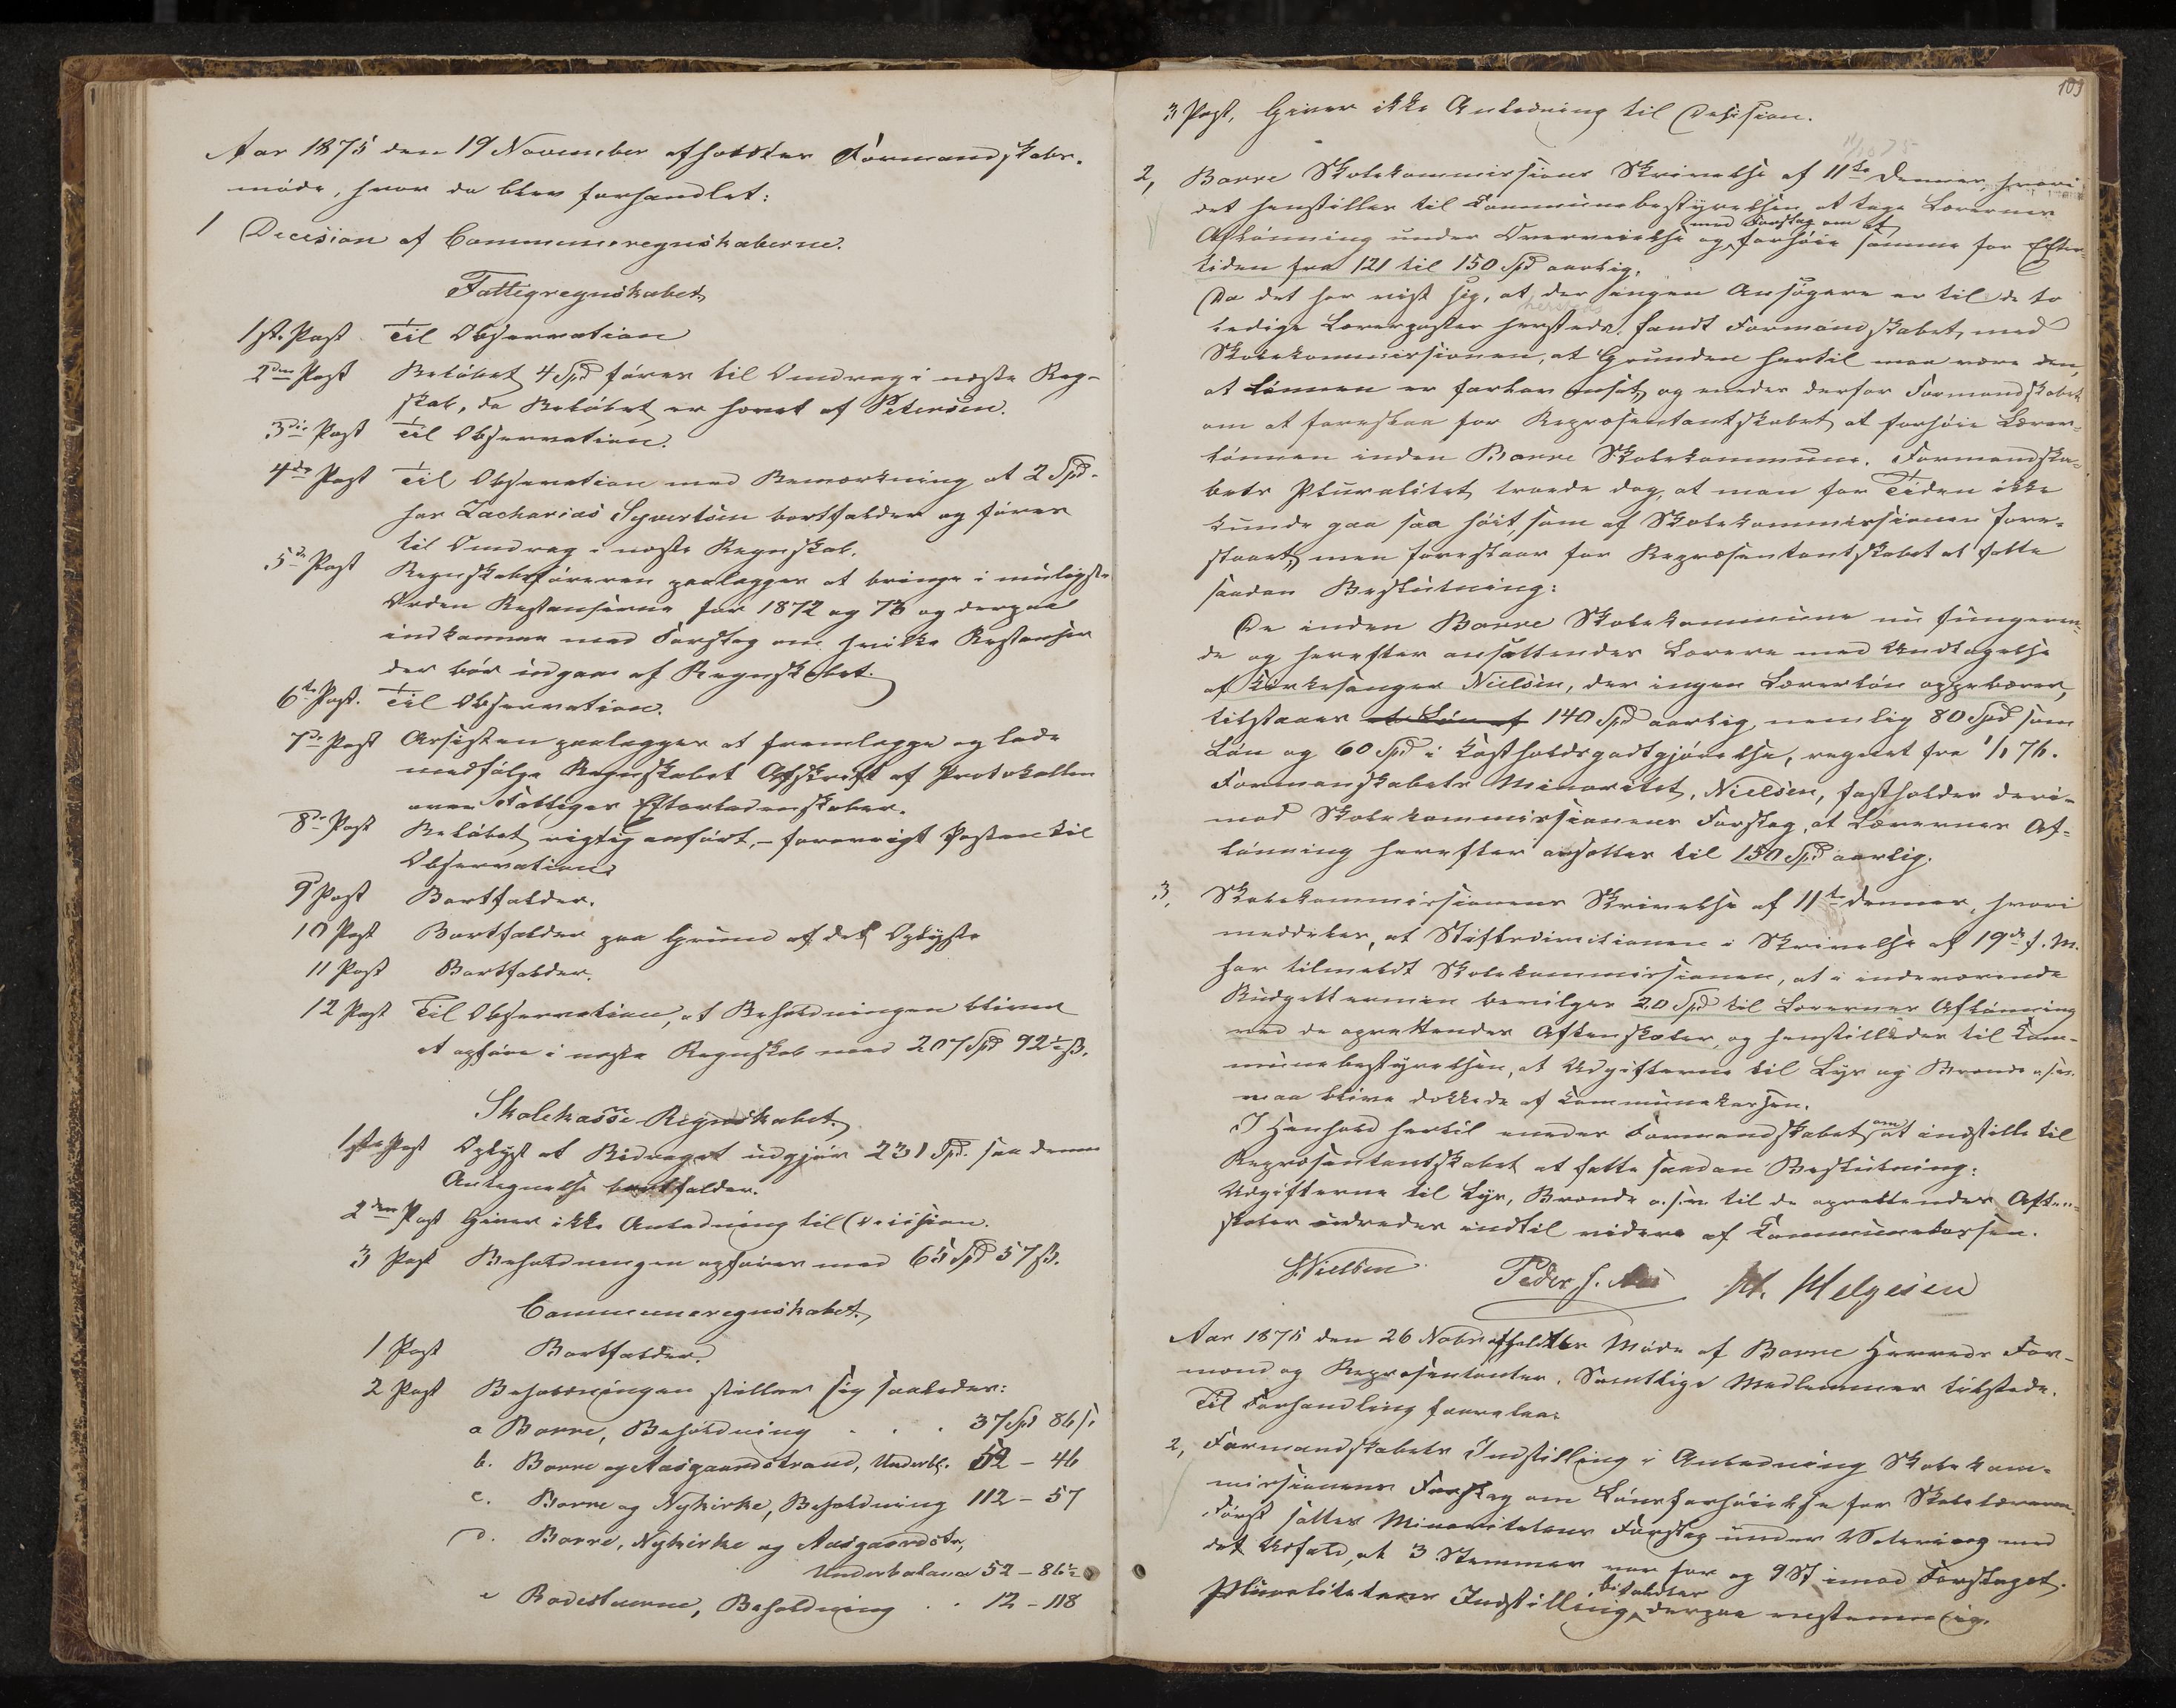 Aar 1875 den 19 November afholdtes Formandskabs-
møde, hvor da blev forhandlet:
1 Decision af Communeregnskaberne.
Fattigregnskabet
1ste Post Til Observation
2den Post Beløbet 4 Spd føres til Indtægt i næste Reg-
skab, da Beløbet er hævet af Petersen.
3die Post Til Observation.
4de Post Til Observation med Bemærkning at 2 Spd.
for Zacharias Syvertsen bortfalder og føres
til Indtægt i næste Regnskab.
5te Post Regnskabsføreren paalægges at bringe i muligste
Orden Restanserne for 1872 og 73 og derpaa
indkomme med Forslag om hvilke Restanser
der bør udgaae af Regnskabet.
6te Post. Til Observation.
7de Post paalægges at fremlægge og lade
medfølge Regnskabet Afskrift af Protokollen
over Fattiges Efterladenskaber.
8de Post Beløbet rigtig anført, – forøvrigt Posten til
Observation
9 Post Bortfalder.
10 Post Bortfalder paa Grund af det Oplyste
11 Post Bortfalder.
12 Post Til Observation, at Beholdningen bliver
at opføre i næste Regnskab med 207 Spd 92½ ß.
Skolekasse-Regnskabet.
1ste Post Oplyst at Bidraget udgjør 231 Spd. saa denne
Antegnelse bortfalder.
2den Post Giver ikke Anledning til Decision.
3 Post Beholdningen opføres med 65 Spd 57 ß.
Communeregnskabet.
1 Post Bortfalder.
2 Post Beholdningen stiller sig saaledes:
a Borre, Beholdning . . . 37 Spd 86 ß
b. Borre og Aasgaardstrand, Underbl. 52 – 46
c. Borre og Nykirke, Beholdning 112 – 57
d. Borre, Nykirke og Aasgaardstr,
Underbalance 52 – 86½
e Rodestuerne, Beholdning . . 12 – 118
103
3 Post, Giver ikke Anledning til Desision.
2, Borre Skolekommissions Skrivelse af 11te dennes, hvori
det henstilles til Kommunebestyrelsen at tage Lærernes
med Forslag om at
Aflønning under Overveielse og forhøie samme for Efter-
tiden fra 121 til 150 Spd aarlig.
Da det har vist sig, at der ingen Ansøgere er til de to
ledige Lærerposter hersteds, fandt Formandskabet med
Skolekommissionen, at Grunden hertil maa være den,
at Lønnen er for lav ansat, og enedes derfor Formandskabet
om at foreslaa for Repræsentantskabet at forhøie Lærer-
lønnen inden Borre Skolekommune. Formandska-
bets Pluralitet troede dog, at man for Tiden ikke
kunde gaa saa høit, som af Skolekommissionen fore-
slaaet, men foreslaar for Repræsentantskabet at fatte
saadan Beslutning:
De inden Borre Skolekommune nu fungeren-
de og herefter ansættendes Lærere med Undtagelse
af Kirkesanger Nielsen, der ingen Lærerløn oppebærer,
tilstaaes en Løn af 140 Spd aarlig, nemlig 80 Spd som
Løn og 60 Spd i Kostholdsgodtgjørelse, regnet fra 1/1 76.
Formandskabets Minoritet, Nielsen, fastholder deri-
mod Skolekommissionens Forslag, at Lærernes Af-
lønning herefter ansættes til 150 Spd aarlig.
3. Skolekommissionens Skrivelse af 11te dennes, hvori
meddeles, at Stiftsdirektionen i Skrivelse af 19de f. M.
har tilmeldt Skolekommissionen, at i indeværende
Budgettermin bevilges 20 Spd til Lærernes Aflønning
ved de oprettendes Aftenskoler, og henstilledes til Kom-
munebestyrelsen, at Udgifterne til Lys og Brænde o.s.v.
maa blive dækkede af Kommunekassen.
I Henhold hertil enedes Formandskabet om at indstille til
Repræsentantskabet at fatte saadan Beslutning:
Udgifterne til Lys, Brænde o.s.v. til de oprettendes Aften-
skoler udredes indtil videre af Kommunekassen.
Nielsen Peder H. M. Helgesen
Aar 1875 den 26 Nobr afholdtes Møde af Borre Herreds For-
mænd og Repræsentanter. Samtlige Medlemmer tilstede.
Til Forhandling forelaa:
2, Formandskabets Indstilling i Anledning Skolekom-
missionens Forslag om Lønsforhøielse for Skolelærerne.
Først sattes Minoritetens Forslag under Votering med
det Udfald, at 3 Stemmer var for og 9 St imod Forslaget.
bifaldtes
Pluralitetens Indstilling derpaa enstemmig.